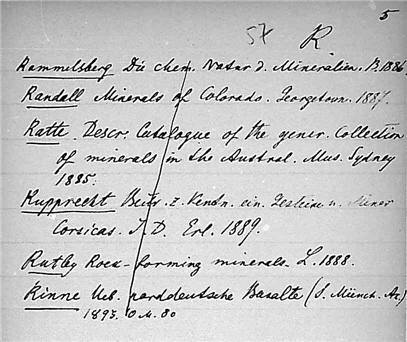 5
57 R.
Rammelsberg Die chem. Natur d. Mineralien. B. 1886
Randall Minerals of Colorado. Georgetown. 1887.
Ratte. Descr. Catalogue of the gener. Collection
of minerals in the Austral. Mus. Sydney
1885.
Rupprecht Beitr. z. Kenntn. ein. Gesteine u. Miner
Corsicas. I. D. Erl. 1889.
Rutley Rock-forming minerals. L. 1888.
Rinne Ueb. norddeutsche Basalte (S. Münch. Ac.)
1893. 0 M. 80